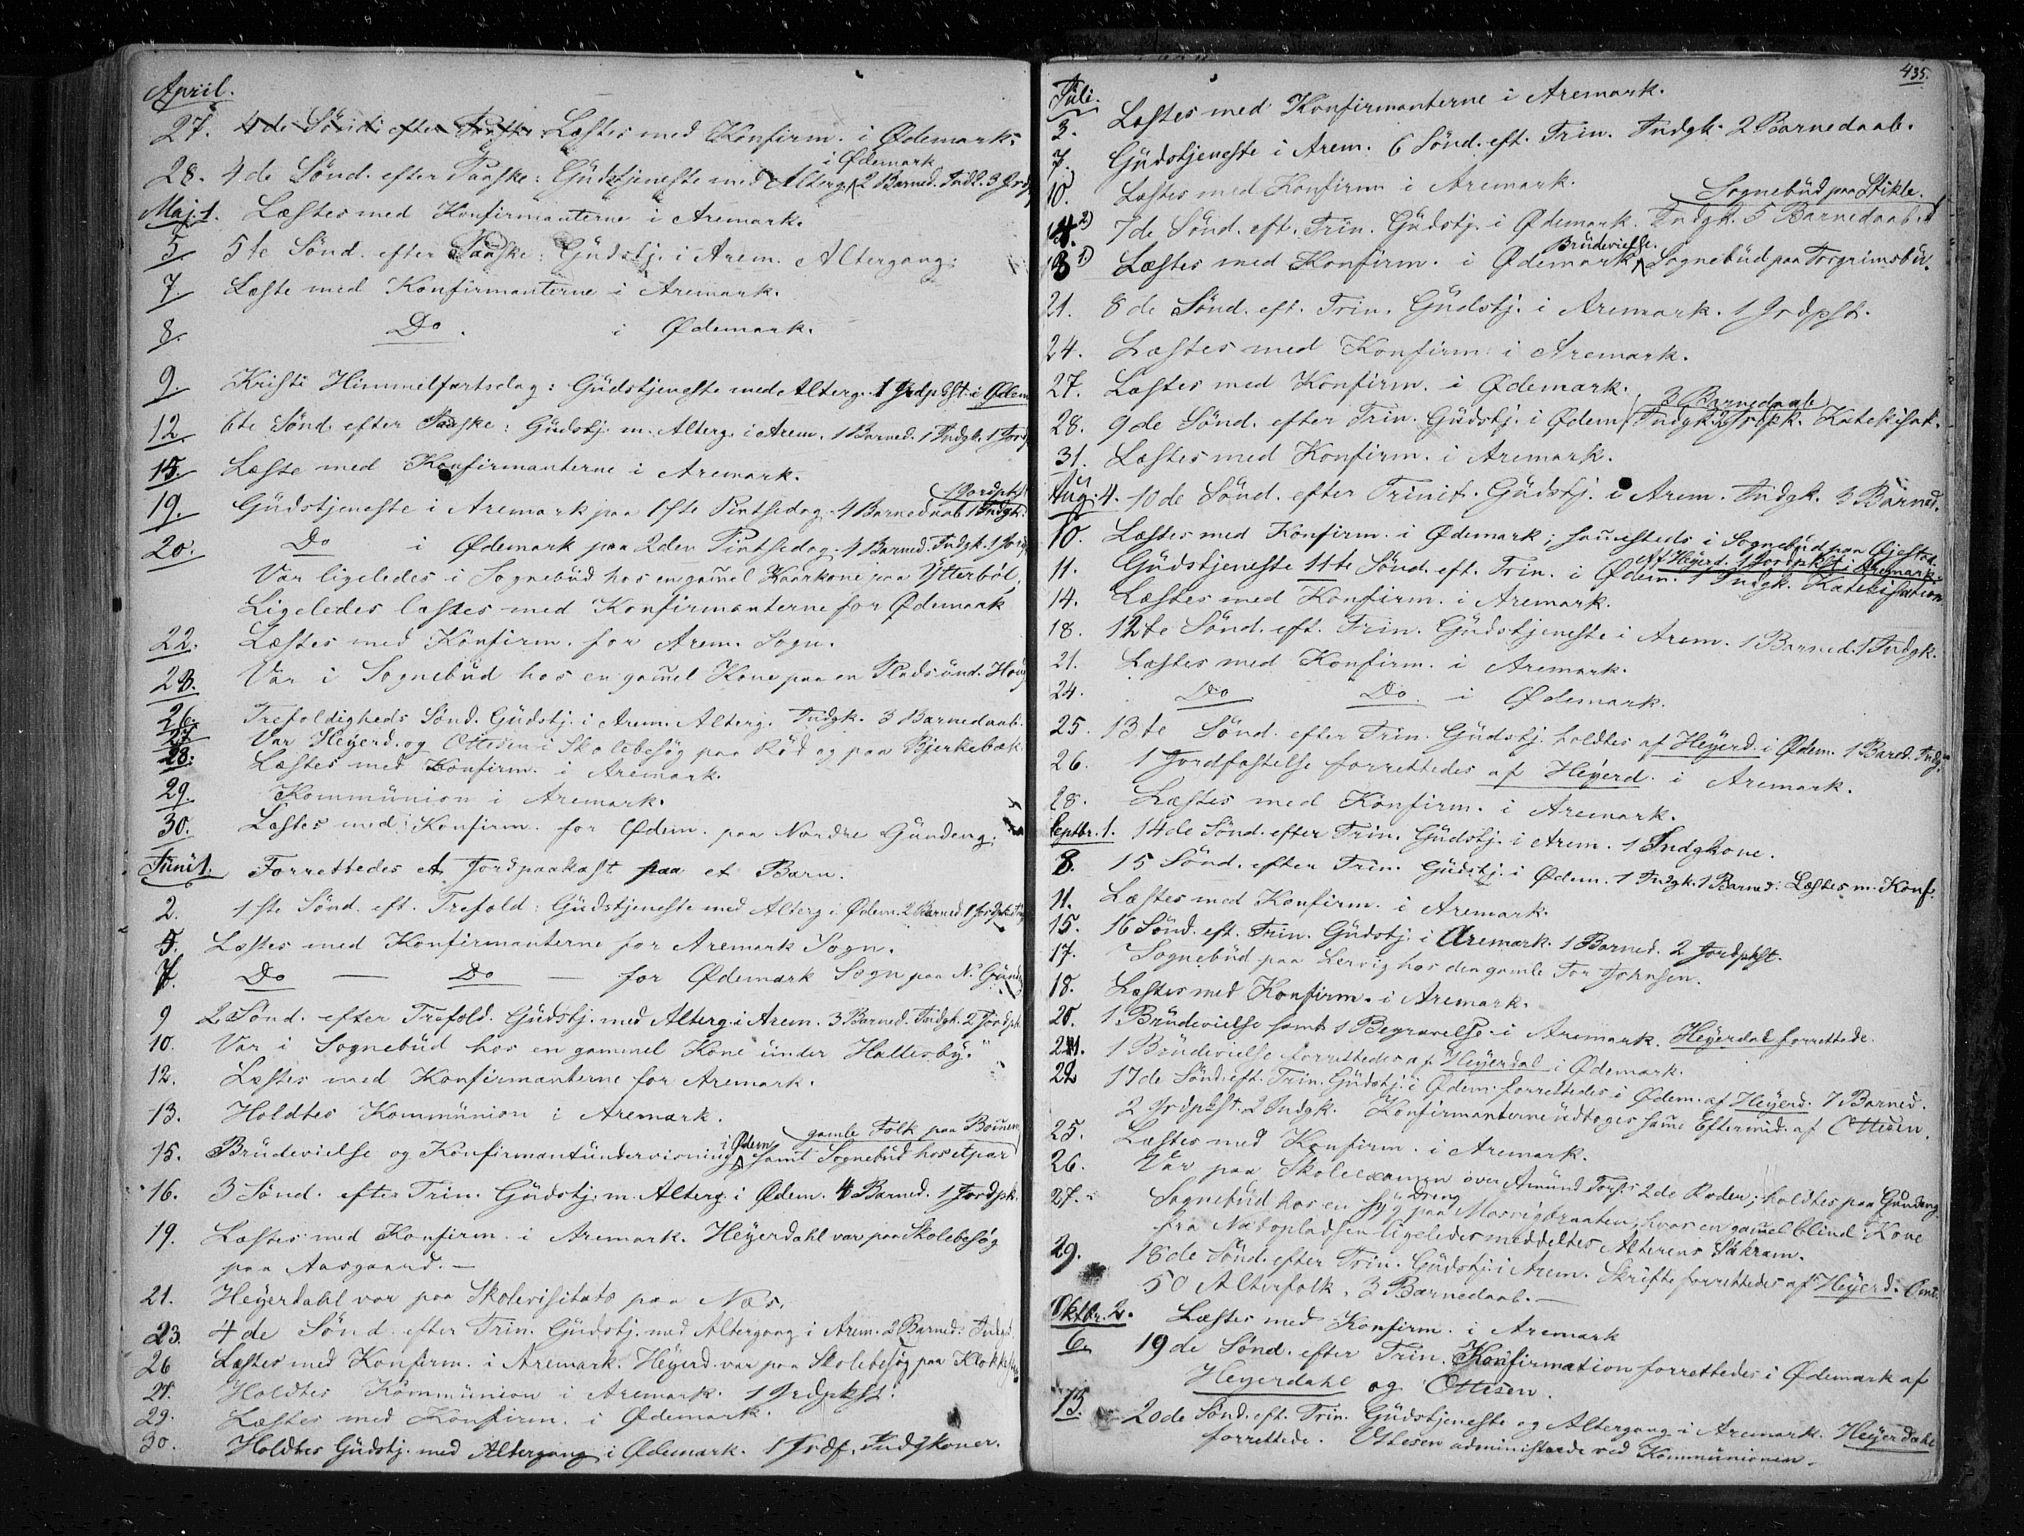 April.
27. 4de Sönd. efter Paaske Læstes med Konfirm. i Ødemark.
i Ødemark
28. 4de Sönd. efter Paaske: Güdstjeneste med Alterg. 2 Barned. Indl. 3 Jrdp
Maj 1. Læstes med Konfirmanterne i Aremark.
5 5te Sönd. efter Paaske: Güdstj. i Arem. Altergang.
7. Læste med Konfirmanterne i Aremark.
8. Do. i Ødemark.
9. Kristi Himmelfartsdag: Güdstjeneste med Alterg. 1 Jrdpkst. i Ødem
12 6te Sönd. efter Paaske: Güdstj. m. Alterg. i Arem. 1 Barned. 1 Indgk. 1 Jord
15. Læste med Konfirmanterne i Aremark.
1 Jordpkst
19. Güdstjeneste i Aremark paa 1ste Pintsedag. 4 Barnedaab 1 Indgk.
20. Do i Ødemark paa 2den Pintsedag. 4 Barned. Indgk. 1 Jord
Var ligeledes i Sognebüd hos en gamel Kaarkone paa Ytterböl,
Ligeledes læstes med Konfirmanterne for Ødemark
22. Læstes med Konfirm. for Arem. Sogn.
23. Var i Sognebüd hos en gamel Kone paa en Plads ünd. Houg
26. Trefoldigheds Sönd. Güdstj. i Arem. Alterg. Indgk. 3 Barnedaab.
27 Var Heyerd. og Ottesen i Skolebesög paa Röd og paa Bjerkebæk.
28. Læstes med Konfirm. i Aremark.
29. Kommünion i Aremark.
30. Læstes med Konfirm. for Ødem. paa Nordre Gündeng.
Juni 1. Forrettedes et Jordpaakast paa et Barn.
2. 1ste Sönd. eft. Trefold: Güdstjeneste med Alterg. i Ødem. 2 Barned. 1 Jordpk.
5. Læstes med Konfirmanterne for Aremark Sogn.
7. Do — Do — for Ødemark Sogn paa N. Günd
9 2 Sönd. efter Trefold. Güdstj. med Alterg. i Arem. 3 Barned. Indgk. 2 Jordpk
10. Var i Sognebüd hos en gammel Kone ünder Hallesby.
12. Læstes med Konfirmanterne for Aremark.
13. Holdtes Kommünion i Aremark.
i Ødem. gamle Folk paa Böünen
15. Brüdevielse og Konfirmantündervisning samt Sognebüd hos et par
16. 3 Sönd. efter Trin. Güdstj. m. Alterg. i Ødem. 4 Barned. 1 Jordpk.
19. Læstes med Konfirm. i Aremark. Heyerdahl var paa Skolebesög
paa Aasgaard. —
21. Heyerdahl var paa Skolevisitats paa Næs.
23. 4de Sönd. efter Trin. Güdstj. med Altergang i Arem. 2 Barned. Indgk.
26 Læstes med Konfirm. i Aremark. Heyerd. var paa Skolebesög paa
27. Holdtes Kommünion i Aremark. 1 Jrdpkst.
29. Læstes med Konfirm. i Ødemark.
30. Holdtes Güdstj. med Altergang i Ødemark. 1 Jrdf. Indgkoner.
435.
Juli.
3. Læstes med Konfirmanterne i Aremark.
7. Güdstjeneste i Arem. 6 Sönd. eft. Trin. Indgk. 2 Barnedaab.
10. Læstes med Konfirm i Aremark.
Sognebüd paa Stikle.
14. 2) 7de Sönd. eft. Trin. Güdstj. i Ødemark. Indgk. 5 Barnedaab.
Brüdevielse.
13 1) Læstes med Konfirm. i Ødemark, Sognebüd paa Torgrimsbü.
21. 8de Sönd. eft. Trin. Güdstj. i Aremark. 1 Jrdpst.
24. Læstes med Konfirm. i Aremark.
27. Læstes med Konfirm. i Ødemark.
3 Barnedaab
28. 9de Sönd. efter Trin. Güdstj. i Ødem. Indgk. 2 Jrdpk. Katekisat.
31. Læstes med Konfirm. i Aremark.
Aug. 4. 10de Sönd. efter Trinit. Güdstj. i Arem. Indgk. 3 Barned.
10. Læstes med Konfirm. i Ødemark; saüesteds i Sognebüd paa Øjestad.
af Heyerd. 1 Jordpkst. i Aremark.
11. Güdstjeneste 11te Sönd. eft. Trin. i Ødem. 1 Indgk. Katekisation
14. Læstes med Konfirm. i Aremark.
18. 12te Sönd. eft. Trin. Güdstjeneste i Arem. 1 Barned. 1 Indgk.
21. Læstes med Konfirm. i Aremark.
24. Do Do i Ødemark.
25. 13te Sönd. efter Trin. Güdstj. holdtes af Heyerd. i Ødem. 1 Barned. Indg
26. 1 Jordfæstelse forrettedes af Heyerd. i Aremark.
28. Læstes med Konfirm. i Aremark.
Septbr. 1. 14de Sönd. efter Trin. Güdstj. i Arem. 1 Indgkone.
8. 15 Sönd. efter Trin. Güdstj. i Ødem. 1 Indgk. 1 Barned: Læstes m. Konf.
11. Læstes med Konfirm. i Aremark.
15. 16 Sönd. eft. Trin. Güdstj. i Aremark. 1 Barned. 2 Jordpkst.
17. Sognebüd paa Lervig hos den gamle Tor Johnsen.
18. Læstes med Konfirm. i Aremark.
20. 1 Brüdevielse samt 1 Begravelse i Aremark. Heyerdal forrettede.
21. 1 Brüdevielse forrettedes af Heyerdal i Ødemark.
22 17de Sönd. eft. Trin. Güdstj. i Ødem. forrettedes i Ødem. af Heyerd. 7 Barned.
2 Jrdpkst. 2 Indgk. Konfirmanterne üdtoges saüe Eftermid. af Ottesen.
25. Læstes med Konfirm. i Aremark.
26. Var paa Skoleexamen over Amünd Torps 2de Roder; holdtes paa Gündeng.
27. Sognebüd hos en syg Dreng paa Mosvigbraaten, hvor en gamel blind Kone
fra Nabopladsen ligeledes meddeltes Alterens Sakram.
29. 18de Sönd. efter Trin. Güdstj. i Arem. Skrifte forrettedes af Heyerd.
50 Alterfolk. 3 Barnedaab. —
Oktbr. 2. Læstes med Konfirm. i Aremark
6. 19de Sönd. efter Trin. Konfirmation forrettedes i Ødemark af
Heyerdahl og Ottesen.
13. 20de Sönd. eft. Trin. Güdstjeneste og Altergang i Aremark. Heyerdahl
forrettede. Ottesen administrerede ved Kommünionen.